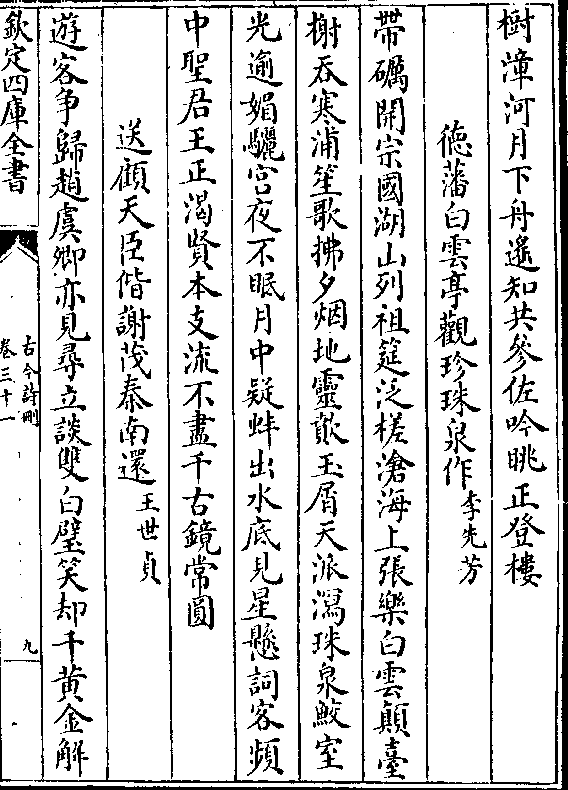 樹漳河月下舟遙知共參佐吟眺正登樓
德藩白雲亭觀珍珠泉作李先芳
帶礪開宗國湖山列祖筵泛槎滄海上張樂白雲顛臺
榭吞寒浦笙歌拂夕烟地靈歕玉屑天派瀉珠泉鮫室
光逾媚驪宮夜不眠月中疑蚌出水底見星懸詞客頻
中聖君王正渴賢本支流不盡千古鏡常圓
送顧天臣偕謝茂秦南還王世貞
遊客争歸趙虞卿亦見尋立談雙白璧笑却千黃金解
欽定四庫全書
古今詩刪
卷三十一
九